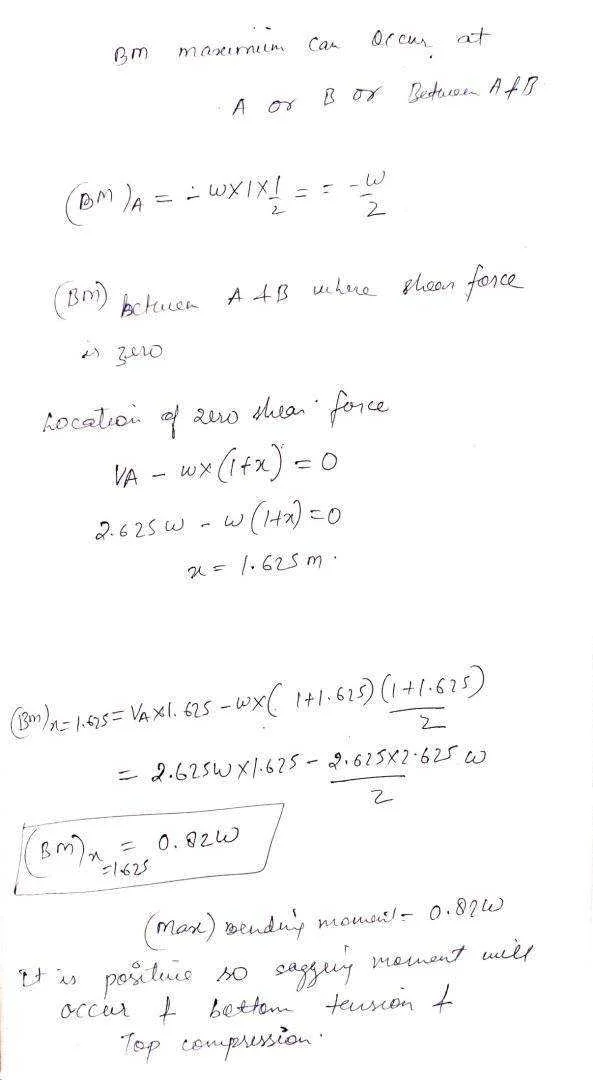 BM maximum can occur at
A or B or Between A & B
(BM)A = - W×1×1/2 = = -W/2
(BM) between A & B where shear force
is zero
Location of zero shear force
VA - W×(1+x) = 0
2.625W - W(1+x) = 0
x = 1.625 m.
(BM)x=1.625 = VA×1.625 - W×(1+1.625)(1+1.625)/2
= 2.625W×1.625 - 2.625×2.625/2 W
(BM)x=1.625 = 0.82W
(Max) Bending moment - 0.82W
It is positive so sagging moment will
occur & bottom tension &
Top compression.